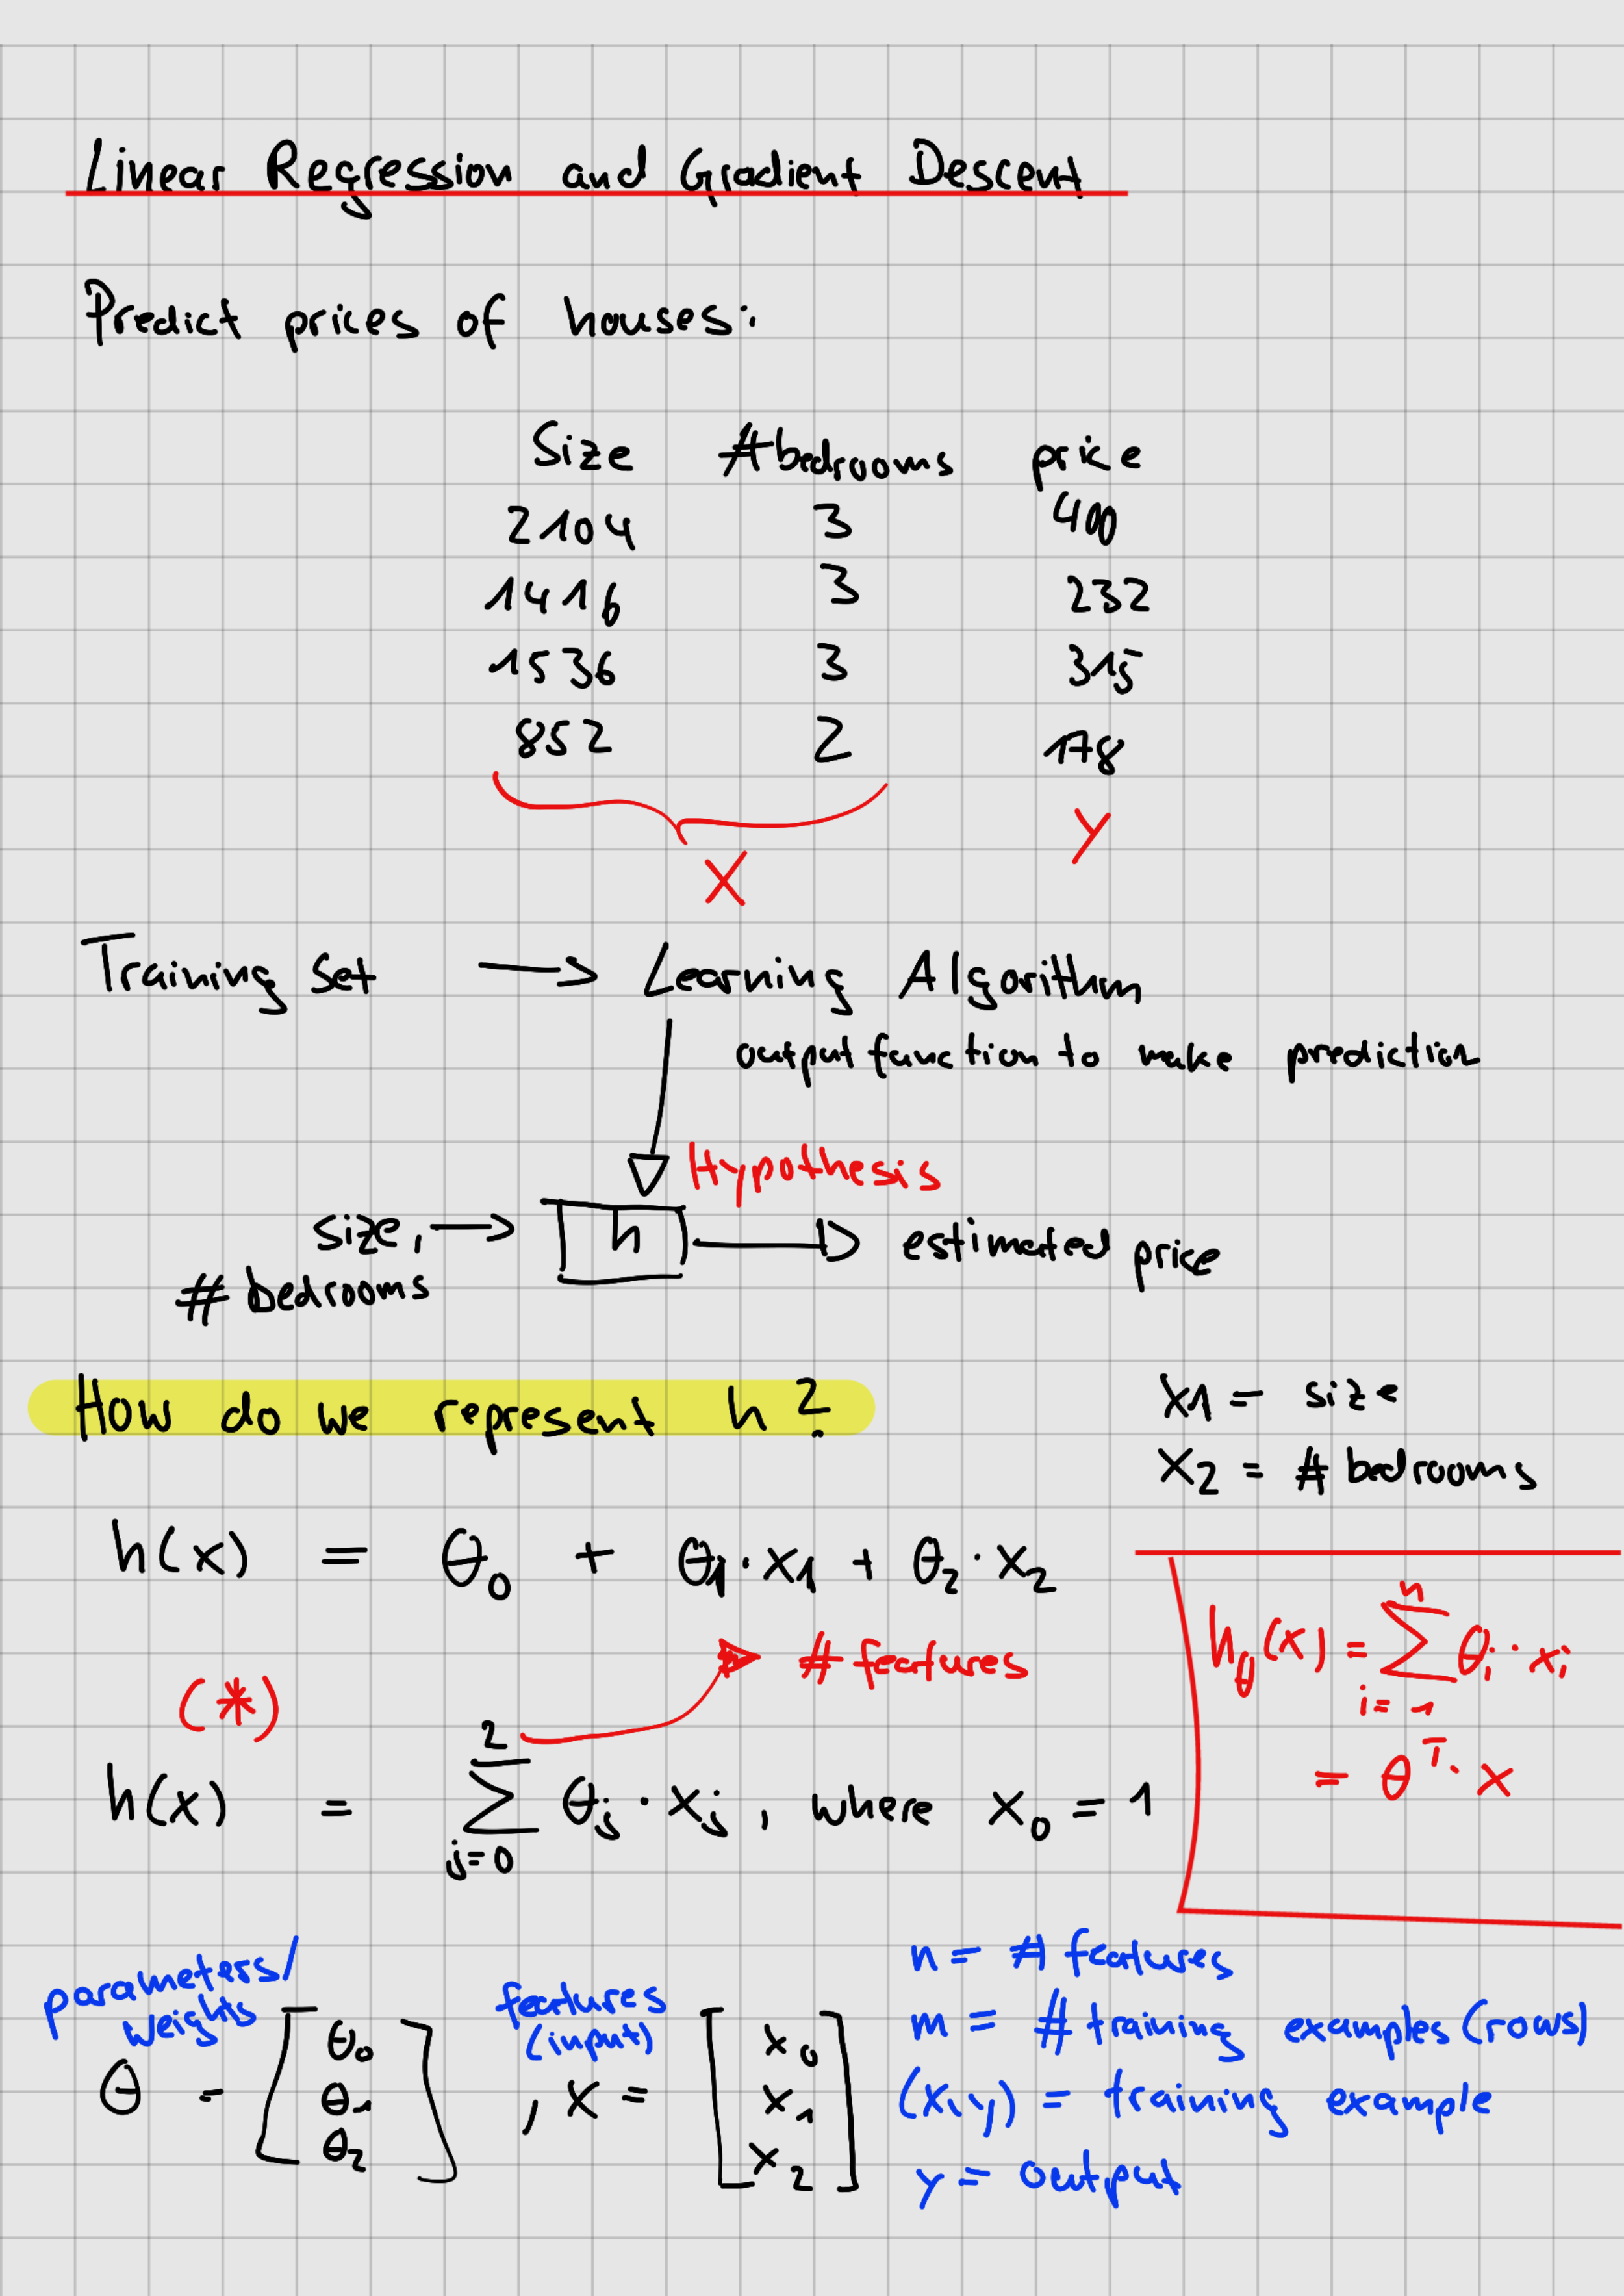 Linear Regression and Gradient Descent
Predict prices of houses:
Size #bedrooms price
2104 3 400
1416 3 232
1536 3 315
852 2 178
X y
Training Set → Learning Algorithm
output function to make prediction
Hypothesis
size, → h → estimated price
# bedrooms
How do we represent h?
x1 = size
x2 = # bedrooms
h(x) = θ0 + θ1·x1 + θ2·x2
# features
(*)
h(x) = ∑_{j=0}^{2} θj·xj, where x0 = 1
hθ(x) = ∑_{i=1}^{n} θi·xi
= θ^T·x
parameters/
weights
θ = [θ0 θ1 θ2]
features
(input)
, x = [x0 x1 x2]
n = # features
m = # training examples (rows)
(x,y) = training example
y = output